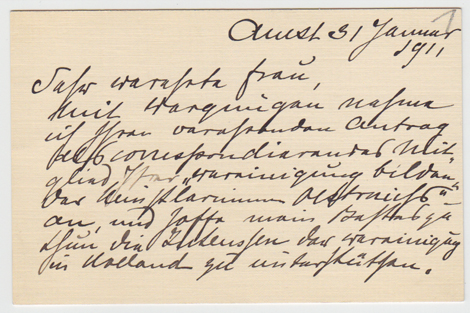 Amst 31 Januar
1911
Sehr verehrte Frau,
Mit Vergnügen nehme
ich Ihren verehrenden Antrag
als correspondierendes Mit-
glied Ihrer „Vereinigung bilden-
der Künstlerinnen Oestreichs"
an, und hoffe mein Bestes zu
thun die Interessen der Vereinigung
in Holland zu unterstützen.